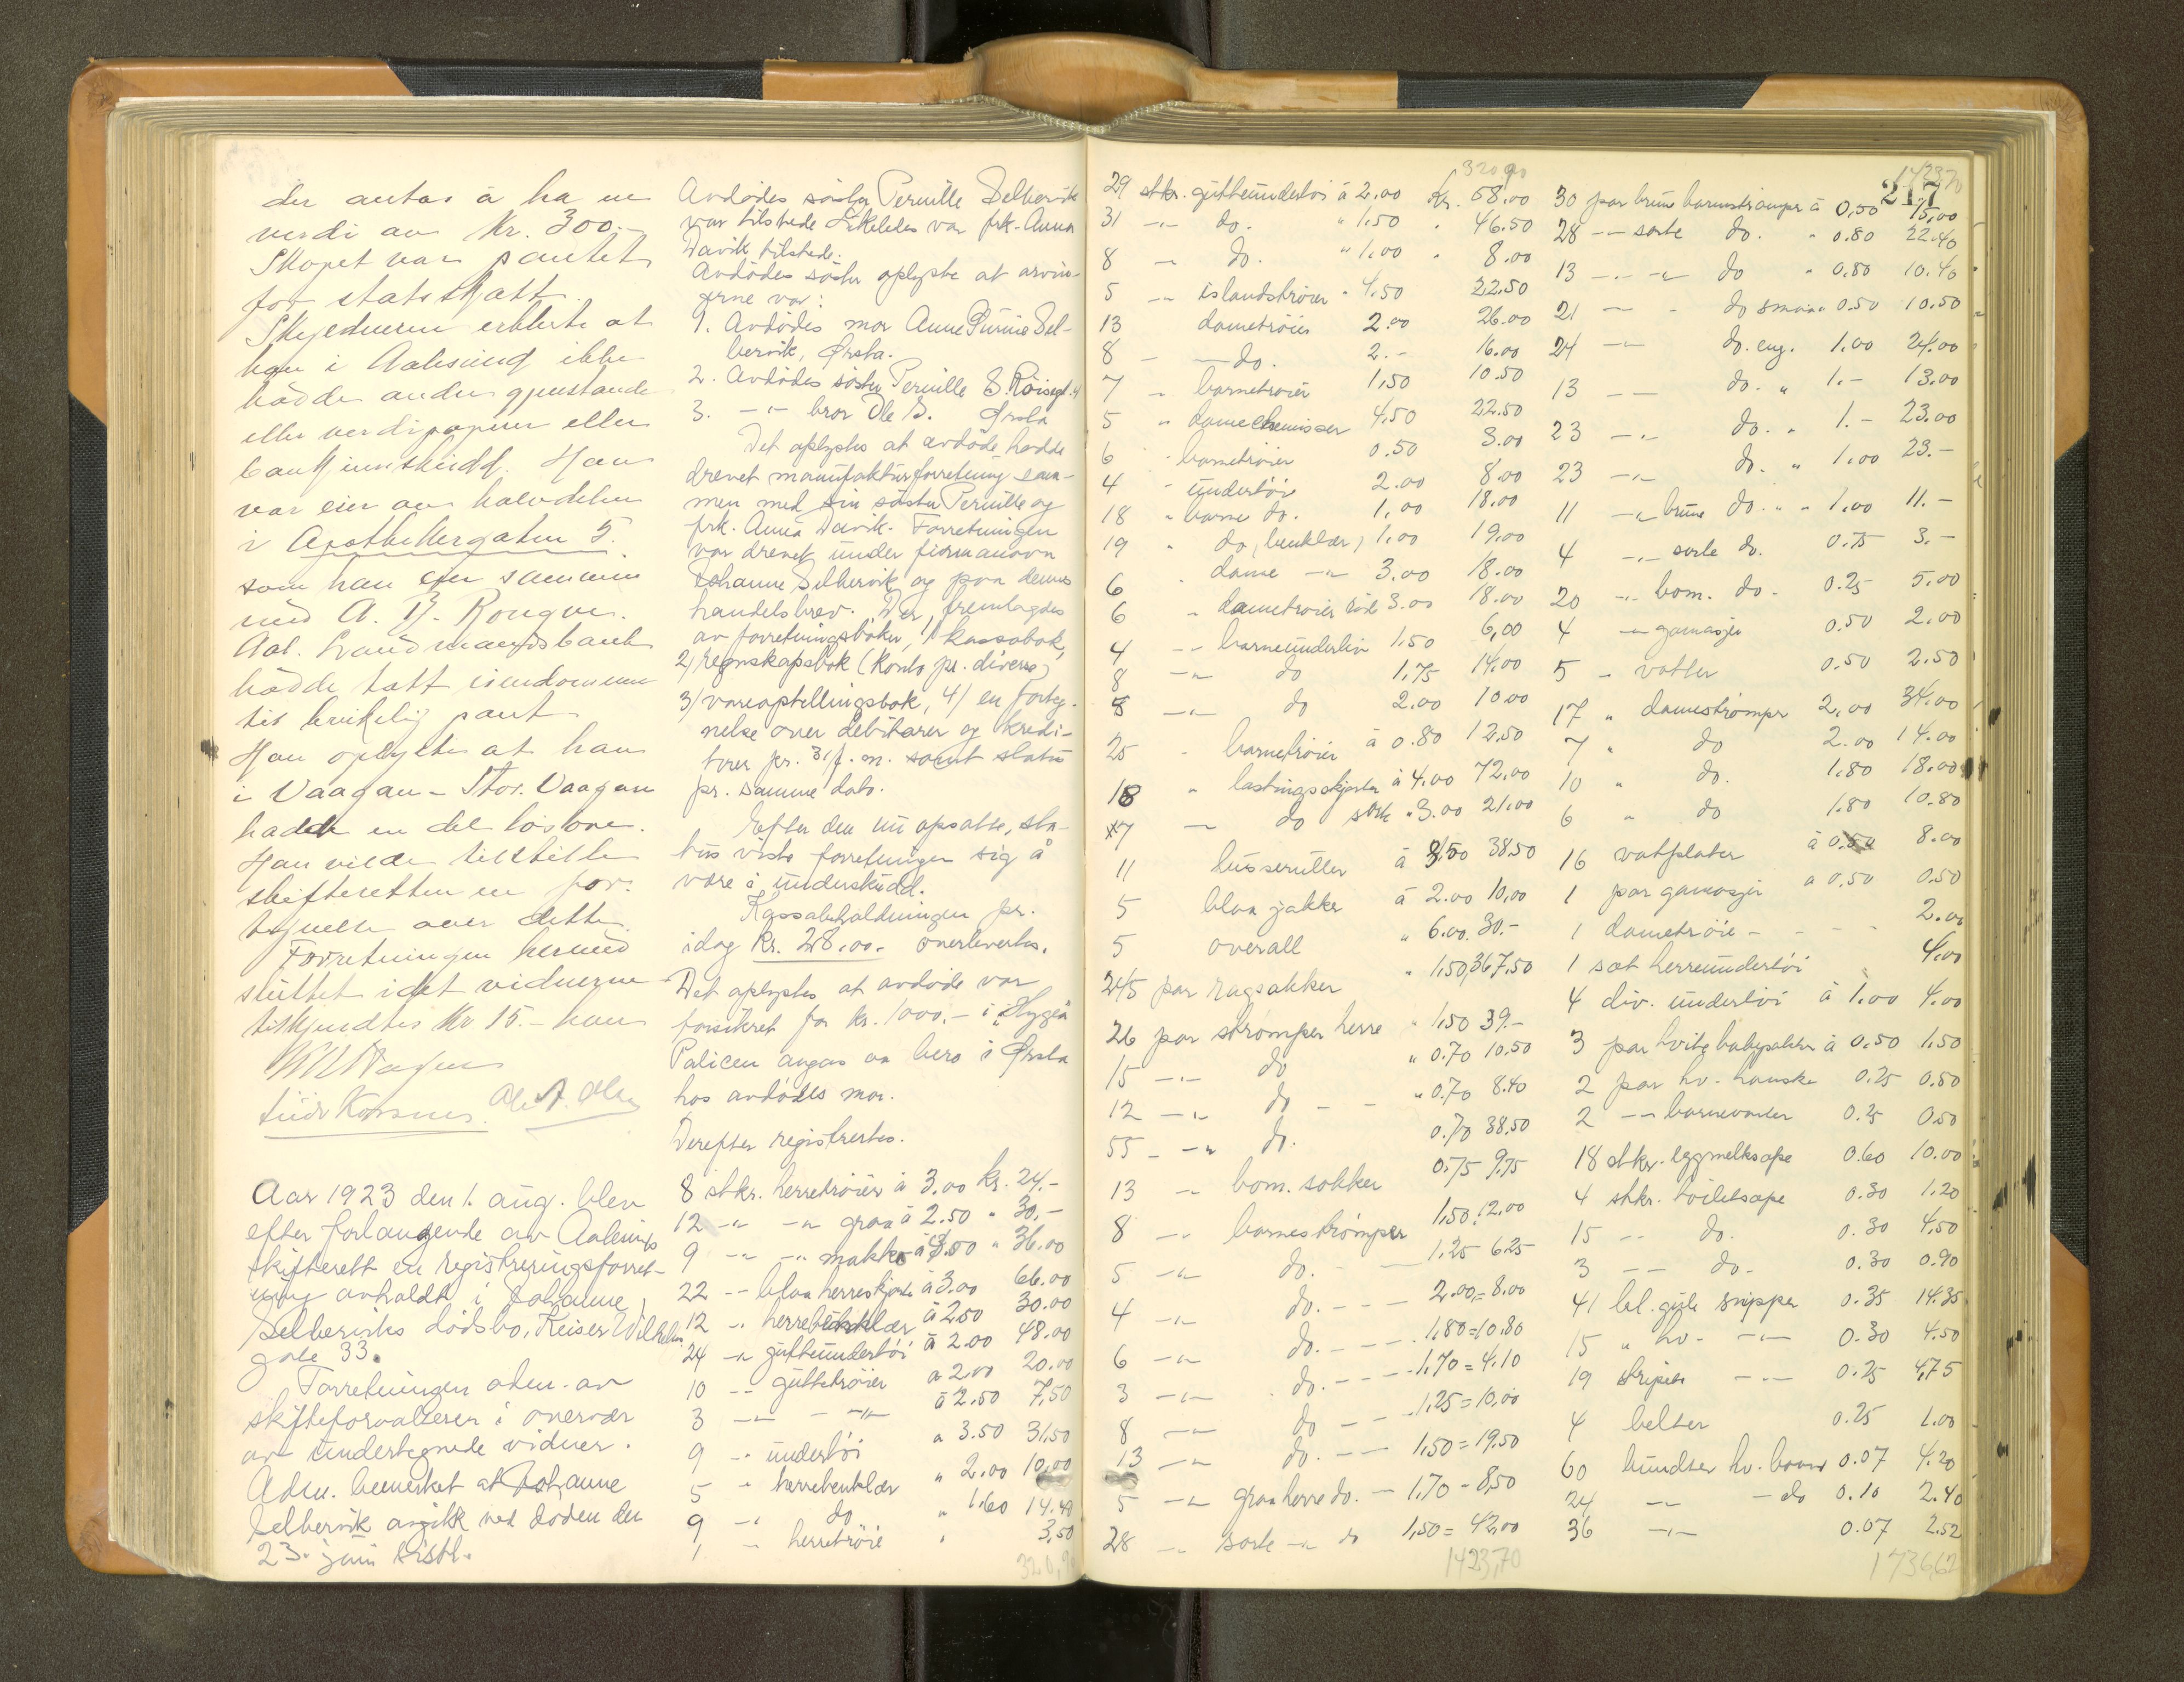 der antas å ha en
verdi av Kr. 300.-
Skapet var pantet
for statsskatt.
Skyldneren erklærte at
han i Aalesund ikke
hadde andre gjenstande
eller verdipapirer eller
bankinnskudd. Han
var eier av halvdelen
i Apothekergaten 5.
som han eier sammen
med A. B. Rongve.
Aal. Landmandsbank
hadde tatt eiendommen
til brukelig pant
Han oplyste at han
i Vaagan - Stor. Vaagan
hadde en del løsøre.
Han vilde tilstille
skifteretten en for-
tegnelse over dette.
Forretningen hermed
sluttet idet vidnerne
tilkjendtes Kr 15.- han
Aar 1923 den 1. aug. blev
efter forlangende av Aalesunds
skifterett en registreringsforret-
ning avholdt i Johanne
Selberviks dødsbo, Keiser Wilhelms
gate 33.
Forretningen adm. av
skifteforvalteren i overvær
av undertegnede vidner.
Adm. bemerket at Johanne
Selbervik avgikk ved døden den
23. juni sistl.
Avdødes søster Pernille Selbervik
var tilstede Likeledes var frk. Anna
Davik tilstede.
Avdødes søster oplyste at arvin-
gerne var:
1. Avdødes mor Anne Selbervik
bervik, Ørsta.
2. Avdødes søster Pernille S.
3. -"- bror Ole S. Ørsta
Det oplystes at avdøde hadde
drevet manufakturforretning sam-
men med sin søster Pernille og
frk. Anna Davik. Forretningen
var drevet under firmanavn
Johanne Selbervik og paa dennes
handelsbrev. Der fremlagdes
av forretningsbøker, 1/ kassabok,
2/ regnskapsbok (konto pr. diverse)
3/ vareoptellingsbok, 4/ en forteg-
nelse over debitorer og kredi-
torer pr. 31/f. m. samt status
pr. samme dato.
Efter den nu opsatte, sta-
tus viste forretningen sig å
være i underskudd.
Kassabeholdningen pr.
idag kr. 28.00.- overleveres.
Det oplystes at avdøde var
forsikret for kr. 1000.- i "Hygea
Policen angas aa bero i Ørsta
hos avdødes mor.
Derefter registrertes.
8 stkr. herretrøier à 3.00 kr. 24.-
12 -"- -"- graa à 2.50 " 30.-
9 -"- -"- makko à 3.50 " 36.00
22 -- blaa herreskjorte à 3.00 66.00
12 -- herrebukseklær à 2.50 30.00
24 -"- gutteundertøi à 2.00 48.00
10 -- guttetrøier à 2.00 20.00
3 -- - -"- à 2.50 7.50
9 -- undertøi a 3.50 31.50
5 " herrebenklær " 2.00 10.00
9 -"- do " 1.60 14.40
1 " herretrøie " 3,50
320,90
320.90
29 stkr. gutteundertøi à 2.00 Kr. 58.00
31 -"- do. " 1.50 " 46.50
8 -"- do. " 1.00 " 8.00
5 -- islandstrøier " 4.50 22.50
13 dametrøier 2.00 26.00
8 - -do. 2.- 16.00
7 " barnetrøier 1,50 10.50
5 " damechemisser 4.50 22.50
6 " barnetrøier 0.50 3.00
4 " undertøi 2.00 8.00
18 " barne do. 1,00 18.00
19 " do, benklær, 1.00 19,00
6 " dame -"- 3.00 18.00
6 " dametrøier 3.00 18.00
4 -- barneunderliv 1.50 6,00
8 -"- do 1.75 14.00
5 -"- do 2.00 10.00
25 " barnetrøier à 0.80 12.50
18 " lastingsskjorter à 4.00 72.00
7 -- do sort " 3.00 21.00
11 busseruller à 3.50 38.50
5 blaa jakker à 2.00 10,00
5 overall " 6.00 30.-
245 par ragsokker " 1,50 367,50
26 par strømper herre " 1.50 39.-
15 -"- do " 0.70 10.50
12 -"- do - - " 0.70 8.40
55 - -"- do. 0.70 38.50
13 -- bom. sokker 0.75 9.75
8 -- barnestrømper 1,50 12.00
5 -"- do. - - 1.25 6.25
4 -"- do. - - - 2.00 = 8.00
6 -"- do. - - - 1.80 = 10.80
3 -"- do. - - - 1.70 = 4.10
8 -"- do - - 1,25 = 10.00
13 -"- do. - - 1,50 = 19.50
5 -"- graa herre do. - 1,70 - 8,50
28 -- sorte -"- do 1,50 = 42,00
1423,70
1423,70
217
30 par brune barnestrømper à 0.50 15,00
28 -"- sorte do. " 0.80 22.40
13 -"- -"- do " 0.80 10.40
21 -- " do smaa 0.50 10.50
24 -"- do. eng. 1.00 24.00
13 -- do. " 1.- 13.00
23 -"- do. " 1.- 23.00
23 -"- do. " 1.00 23.-
11 -"- brune do. " " 1.00 11.-
4 -"- sorte do. 0.75 3.-
20 -"- bom. do - 0.25 5.00
4 -"- gamasjer 0.50 2.00
5 " votter 0.50 2.50
17 " damestrømper 2.00 34.00
7 " do 2.00 14.00
10 " do. 1.80 18.00
6 " do 1.80 10.80
16 vatplater à 0.50 8.00
1 par gamasjer a 0.50 0.50
1 dametrøie - - - - 2.00
1 sæt herreundertøi 4.00
4 div. undertøi à 1.00 4.00
3 par hvite babysokker à 0.50 1.50
2 par hv. hansker 0.25 0.50
2 -- barnevanter 0.25 0.50
18 stkr. eggmelksåpe 0.60 10.00
4 stkr. toiletsåpe 0.30 1.20
15 -- do. 0.30 4.50
3 -- do - 0.30 0.90
41 bl. gule snipper 0.35 14.35
15 " hv. -"- 0.30 4.50
19 stripete -"- 0.25 4,75
4 belter 0.25 1.00
60 bundter hv. baand 0.07 4.20
24 -"- - do 0.10 2.40
36 -"- 0.07 2.52
1736,62